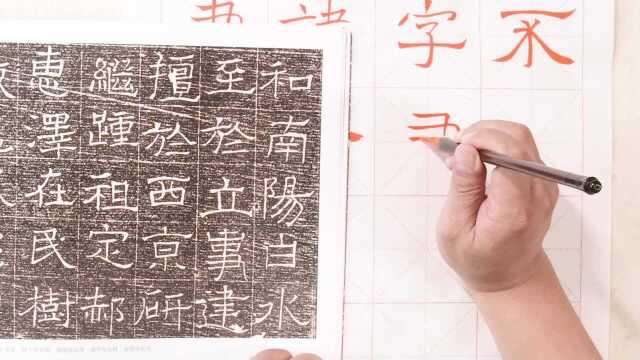 字
和南陽白水
至於立事建
擅於西亰研
繼踵祖定郝
惠澤在民樹